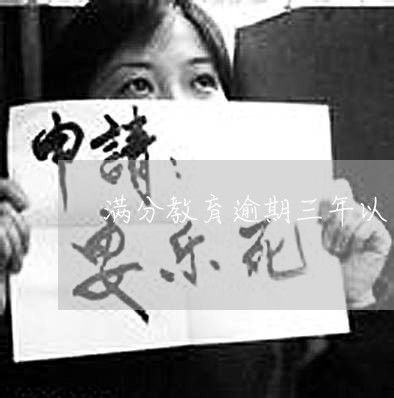 申請：
满分教育逾期三年以
要乐死